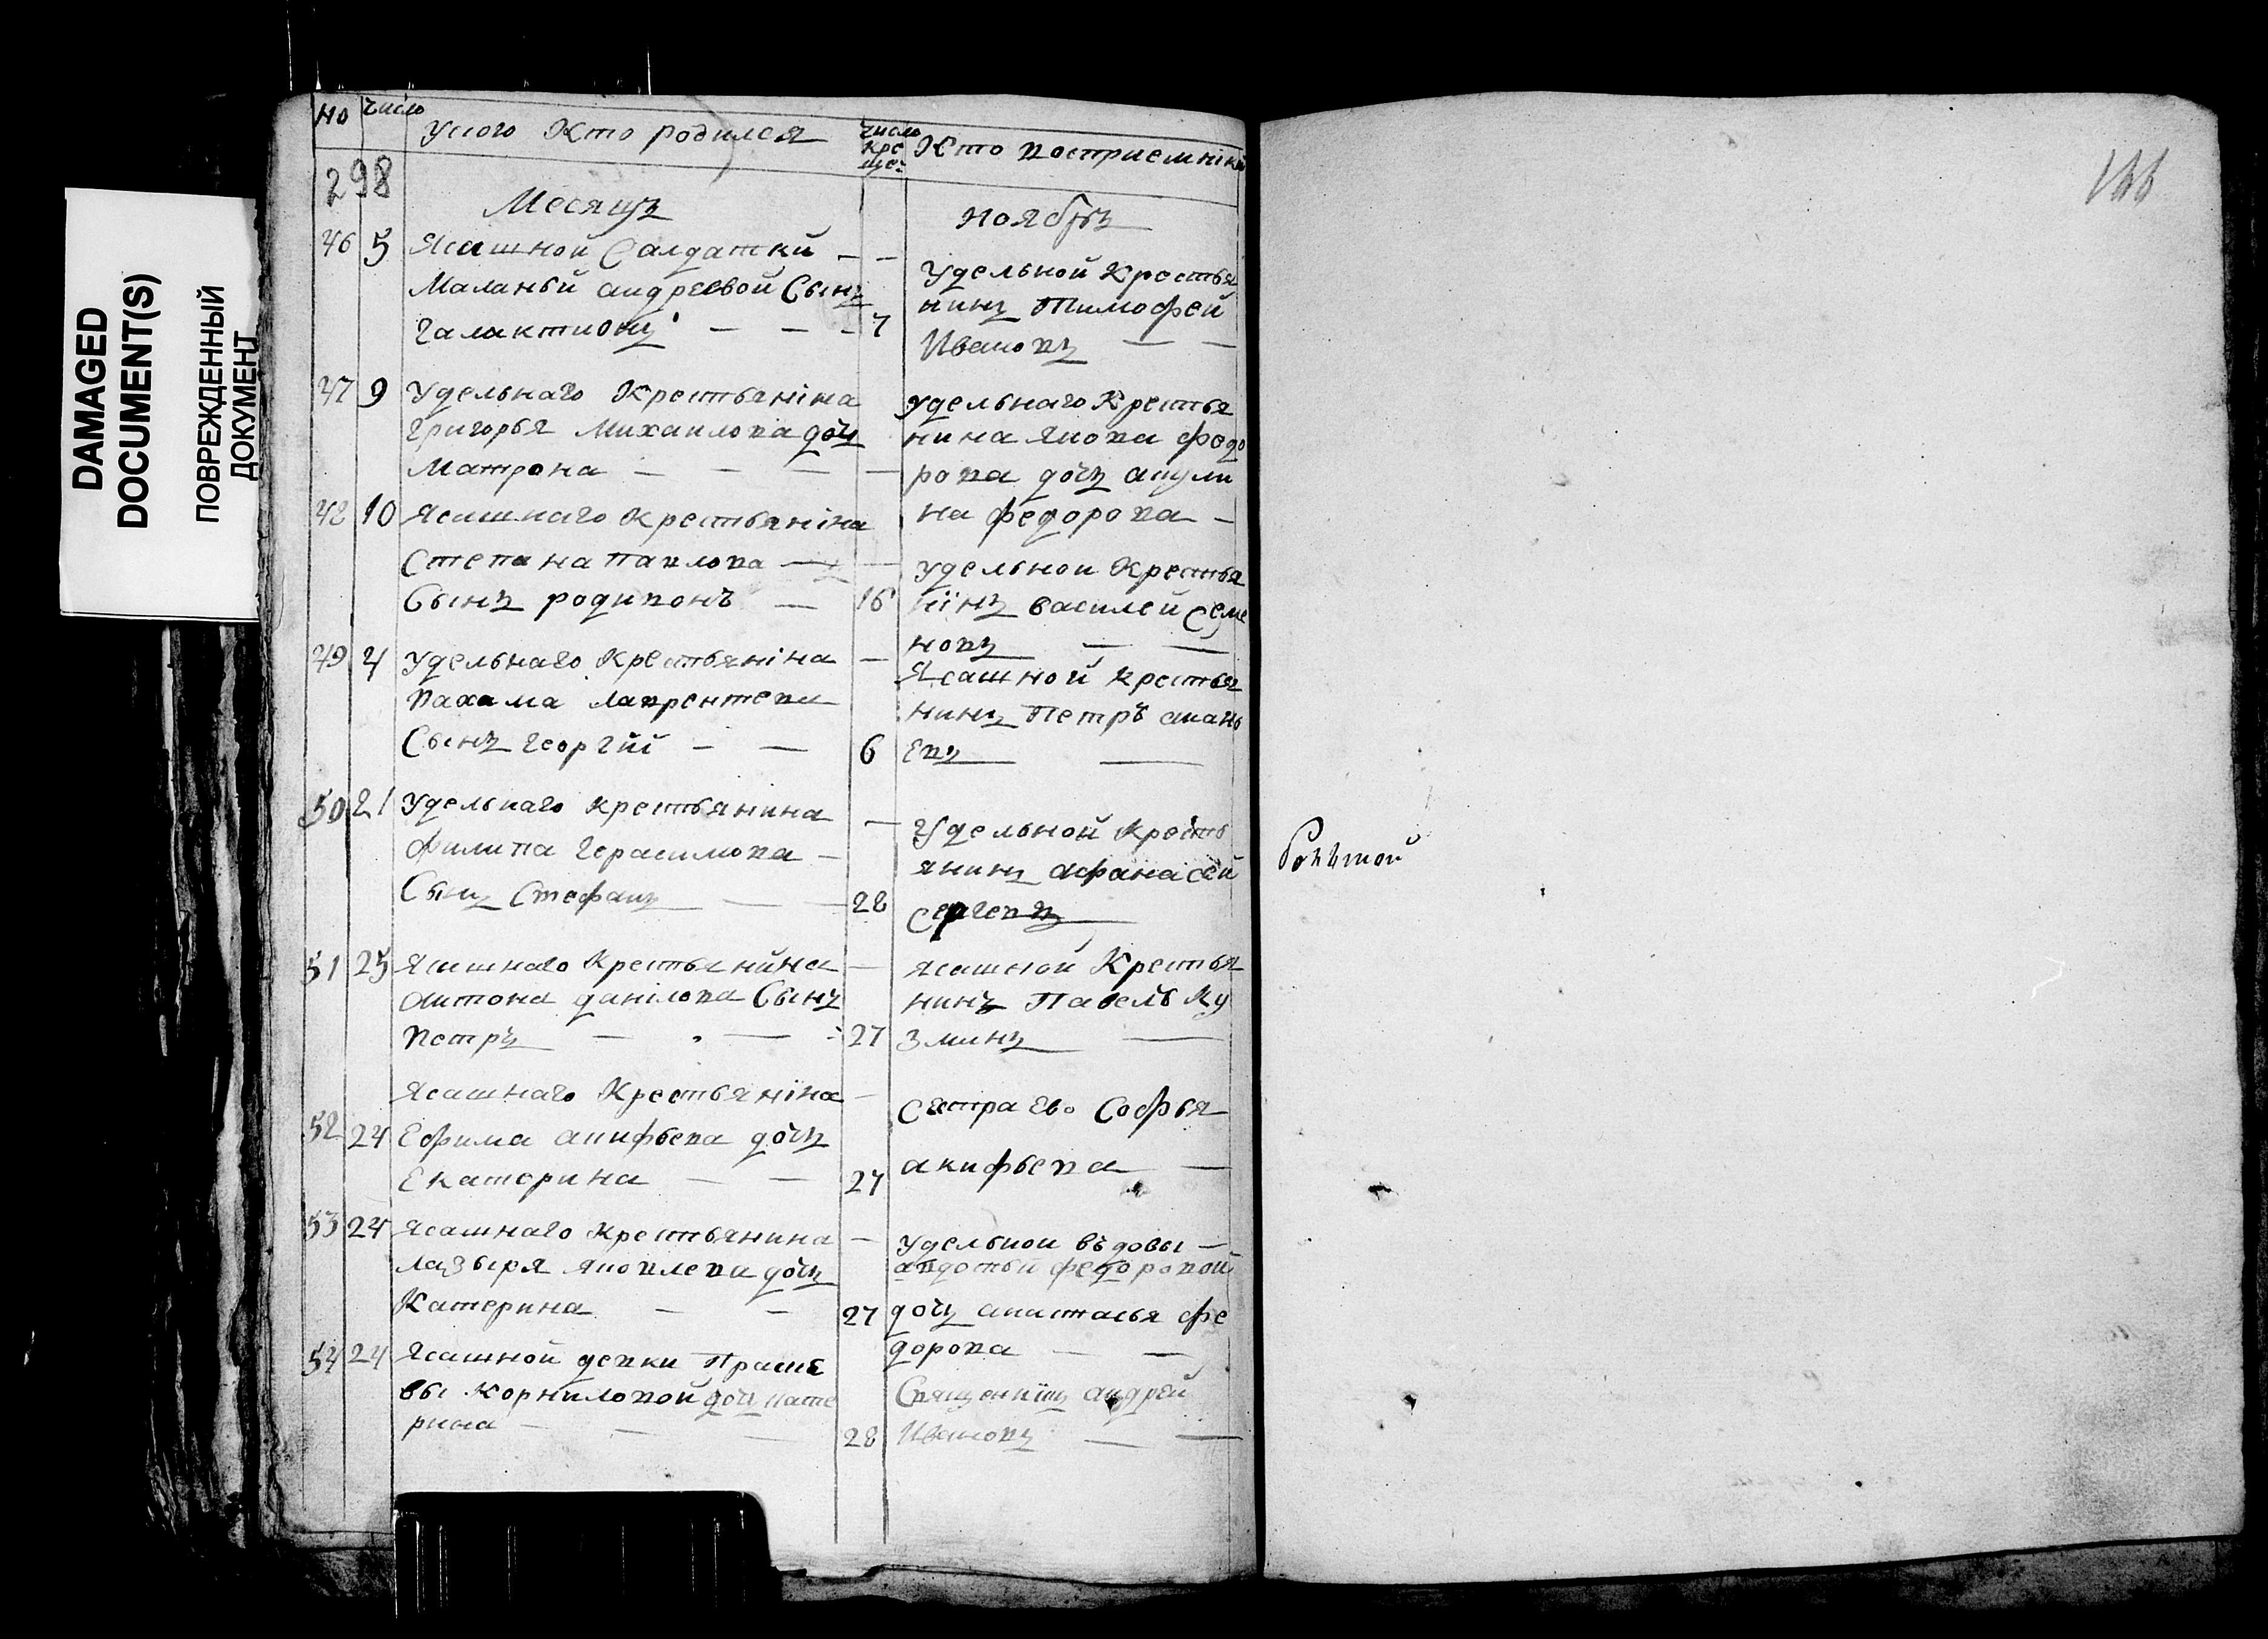 DAMAGED
DOCUMENT(S)
ПОВРЕЖДЕННЫЙ
ДОКУМЕНТ
но число укого кто родился число креще: кто восприемнікъ
298
Месяцъ ноябрь
46 5 Ясашной Салдатки
Маланьи андреевой Сынъ
галактионъ 7
Удельной крестья
нинъ Тимофей
Ивановъ
47 9 Удельнаго Крестьяніна
григорья Михаилова дочь
Матрона
удельнаго Крестья
нина якова федо
рова дочь акули
на федорова
48 10 Ясашнаго крестьяніна
Степана Павлова
Сынъ родивонъ 16
удельной Крестья
нінъ василей Семе
новъ
49 4 Удельнаго Крестьяніна
вахама лаврентева
Сынъ георгій 6
Ясашной крестья
нинъ Петръ анань
евъ
50 21 Удельнаго крестьянина
филипа герасимова
Сынъ Стефанъ 28
Удельной Кресть
янинъ афанасей
Сергевъ
51 25 Ясашнаго Крестьянина
антона данілова Сынъ
Петръ 27
ясашной Крестья
нинъ Павелъ Ку
зминъ
Ясашнаго Крестьяніна
52 24 Ефима акифьева дочь
Екатерина 27
Сестра ево Софья
акифьева
53 24 Ясашнаго Крестьянина
лазыря яковлева дочь
Катерина 27
удельной въдовы
авдотьи федоровой
дочь анастасья фе
дорова
54 24 Ясашной девки Праске
вы корниловой дочь кате
рина 28
Священникъ андрей
Ивановъ